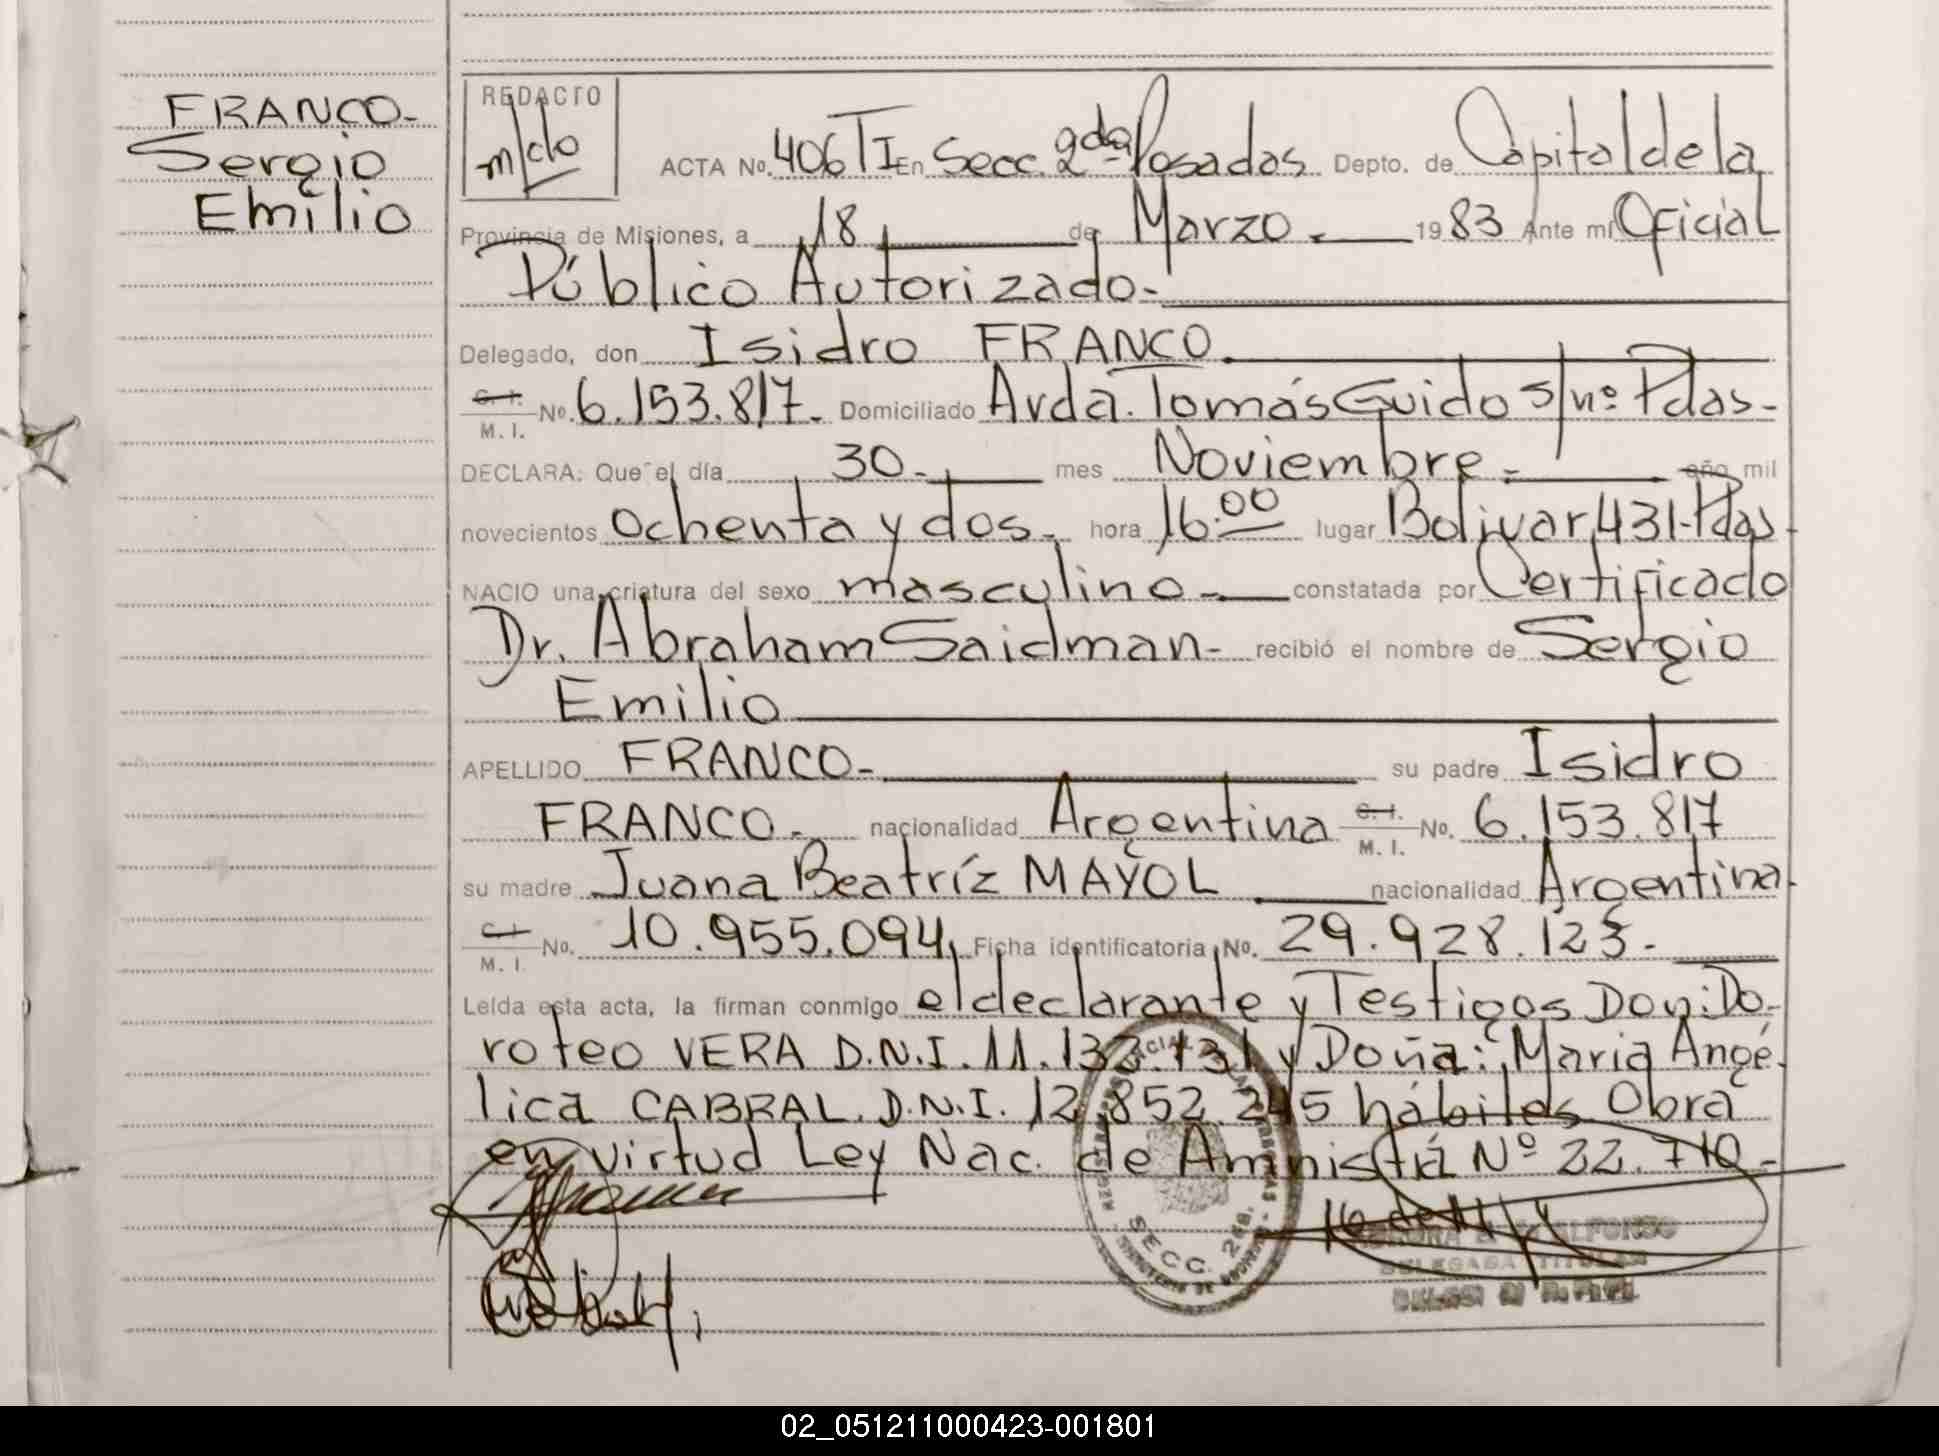 FRANCO-
Sergio
Emilio
REDACTO
ACTA No. 406 TI En Secc. 2da Posadas Depto. de Capital de la
Provincia de Misiones, a 18 de Marzo 1983 Ante mí Oficial
Público Autorizado-
Delegado, don Isidro FRANCO.
C. I. M. I. No. 6.153.817- Domiciliado Avda. Tomás Guido s/nº Pdas-
DECLARA: Que el día 30- mes Noviembre- año mil
novecientos ochenta y dos- hora 16.00 lugar Bolivar 431-Pdas-
NACIO una criatura del sexo masculino- constatada por Certificado
Dr. Abraham Saidman- recibió el nombre de Sergio
Emilio
APELLIDO FRANCO- su padre Isidro
FRANCO- nacionalidad Argentina C. I. M. I. No. 6.153.817
su madre Juana Beatríz MAYOL nacionalidad Argentina-
C. I. M. I. No. 10.955.094 Ficha identificatoria No. 29.928.123-
Leída esta acta, la firman conmigo el declarante y Testigos Don: Do-
roteo VERA D.N.I. 11.133.131 y Doña: Maria Angé-
lica CABRAL. D.N.I. 12.852.245 hábiles Obra
en virtud Ley Nac. de Amnistía Nº 22.710-
SECC. 2da.
ALFONSO
DELEGADA TITULAR
02_051211000423-001801